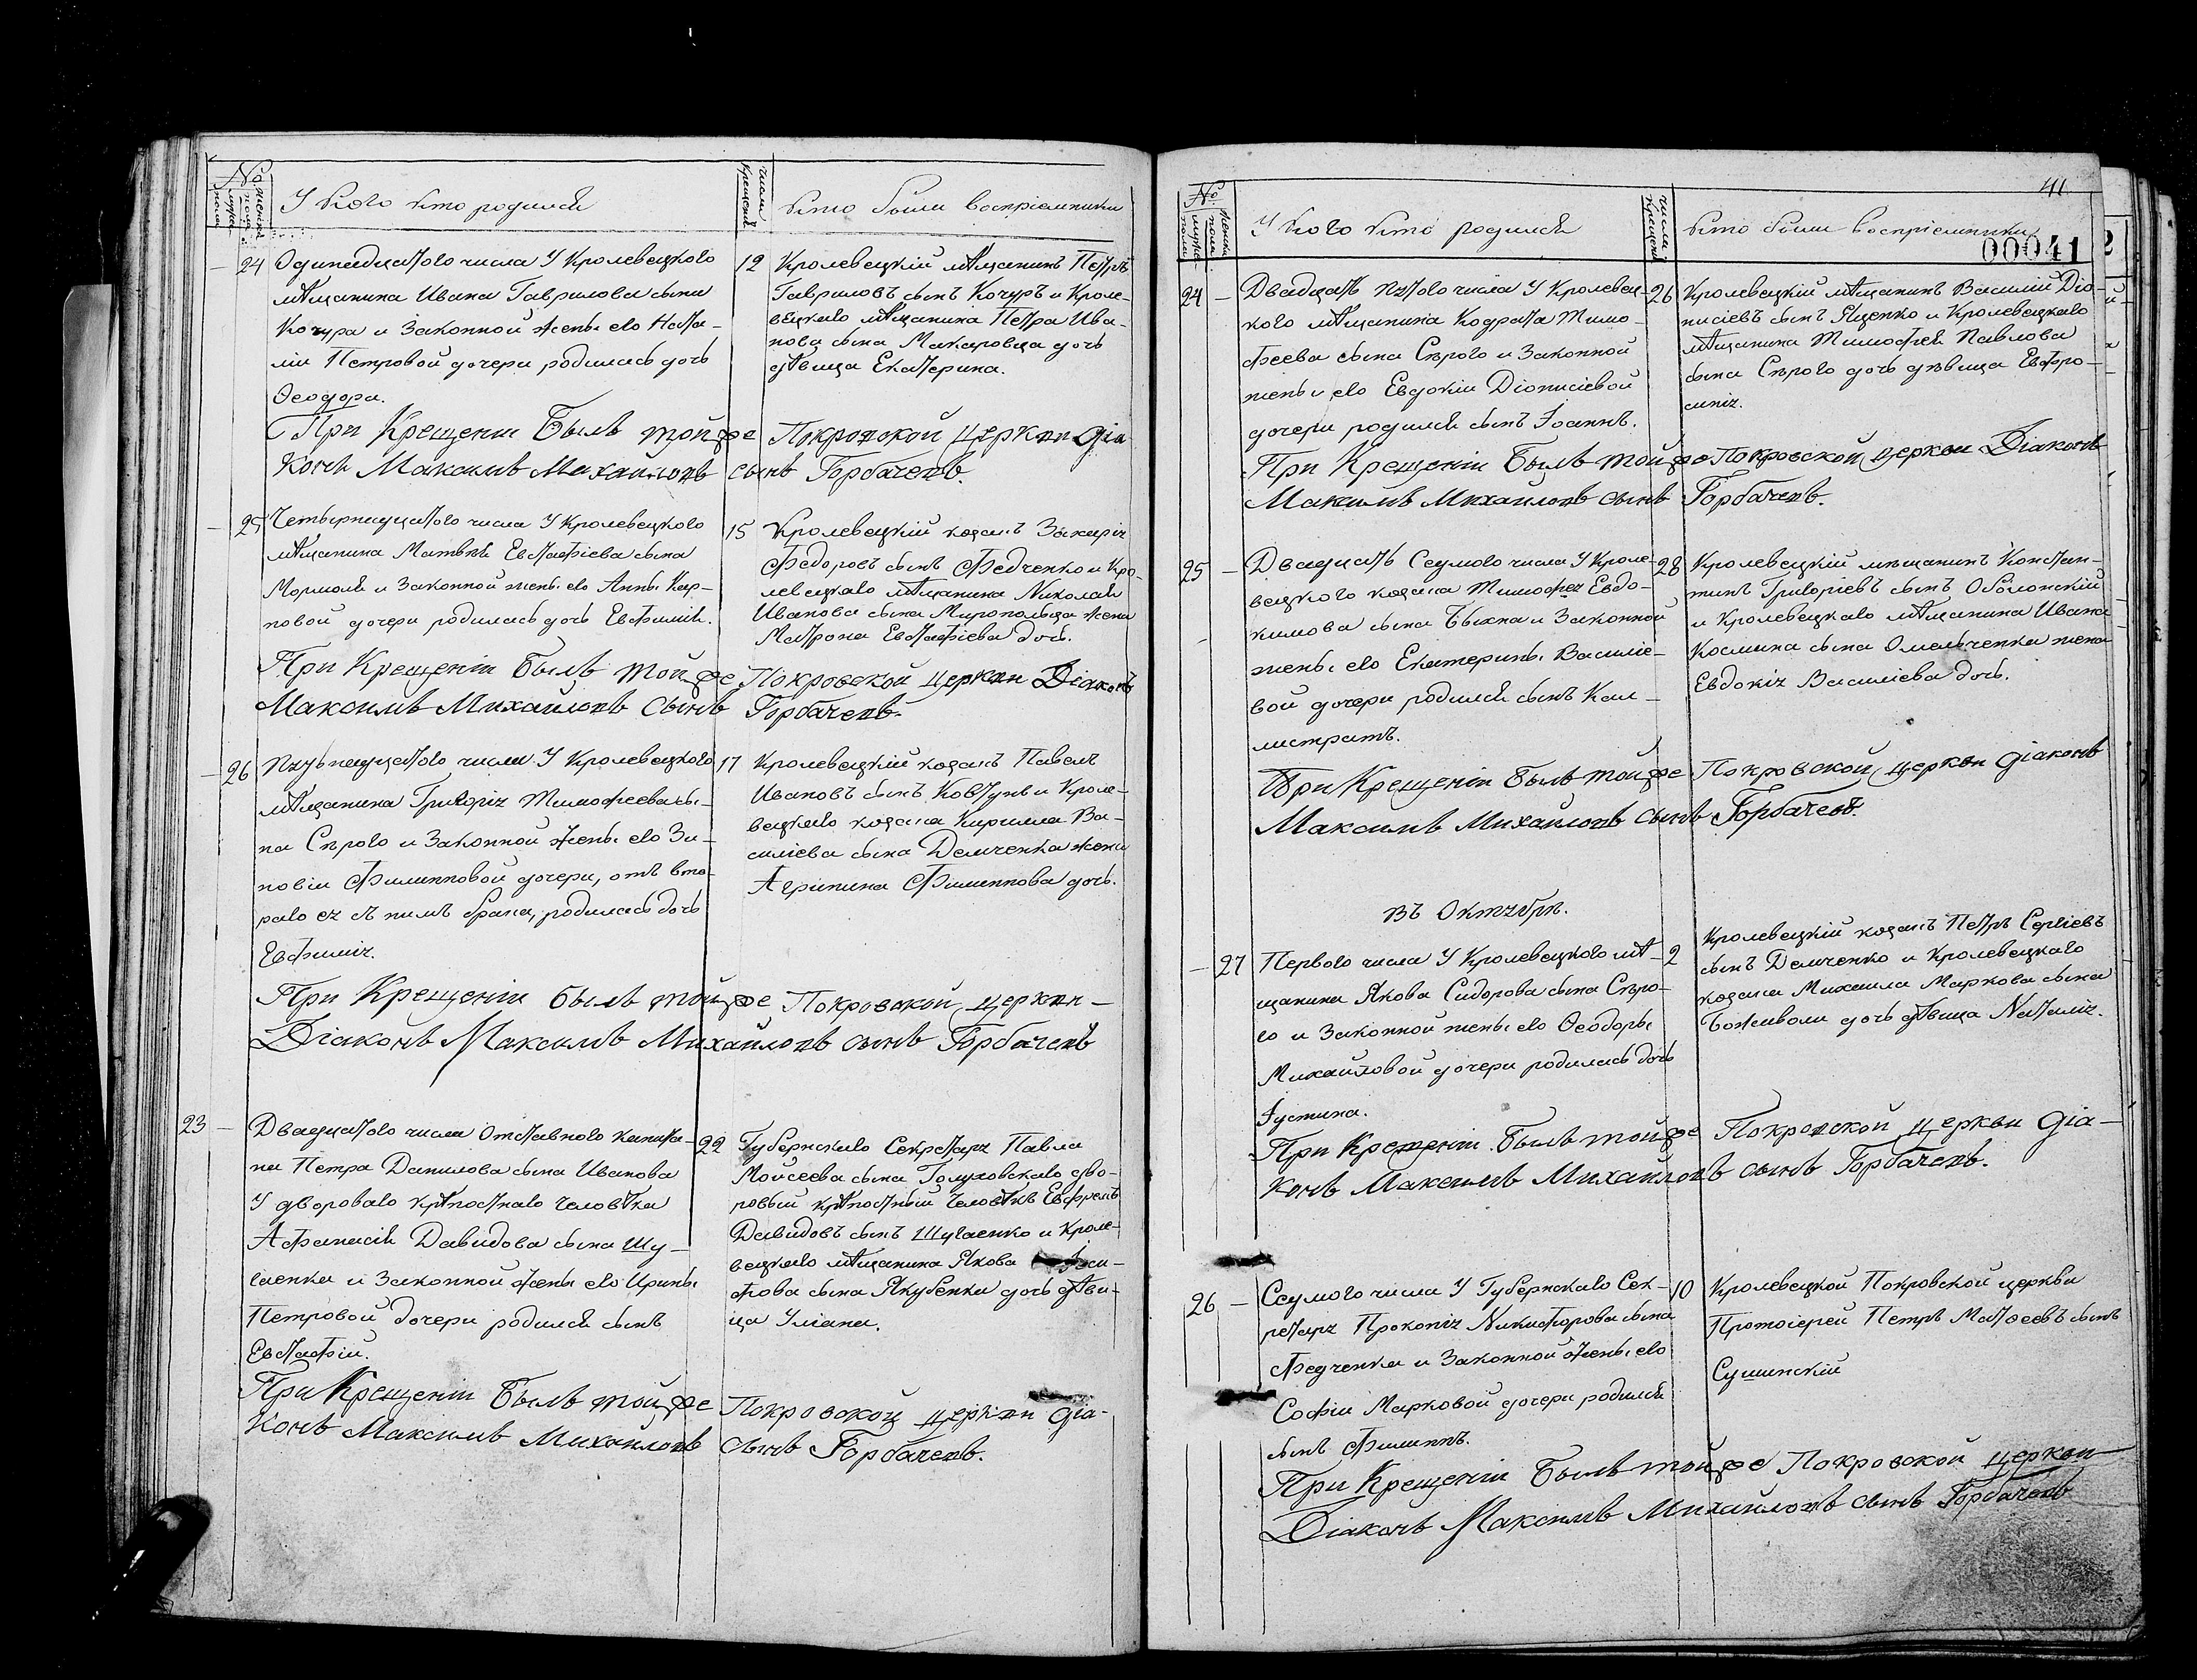 №
мужеска пола
женска пола
У кого кто родился
числа крещенія
кто были воспріемники
24
Одинадцатого числа У Кролевецкого
мѣщанина Ивана Гаврилова сына
Кочура и Законной жены его Ната-
ліи Петровой дочери родилась дочь
Ѳеодора.
12
Кролевецкій мѣщанинъ Петръ
Гавриловъ сынъ Кочуръ и Кроле-
вецкаго мѣщанина Петра Ива-
нова сына Макаровца дочь
дѣвица Екатерина.
При Крещеніи Былъ тойже Покровской церкви Діа
конъ Максимъ Михайловъ сынъ Горбачевъ.
25
Четырнадцатого числа У Кролевецкого
мѣщанина Матвѣя Евстафіева сына
и Законной жены его Анны Кар-
повой дочери родилась дочь Евфимія.
15
Кролевецкій козакъ Захарія
Федоровъ сынъ Федченко и Кро-
левецкаго мѣщанина Николая
Иванова сына Миропольца жена
Матрона Евстафіева дочь.
При Крещеніи Былъ тойже Покровской церкви Діаконъ
Максимъ Михайловъ Сынъ Горбачевъ.
26
Пятьнадцатого числа У Кролевецкого
мѣщанина Григорія Тимофеева сы-
на Сѣрого и Законной жены его Зи-
новіи Филипповой дочери, отъ вто-
раго ея съ нимъ брака, родилась дочь
Евфимія.
17
Кролевецкій козакъ Павелъ
Ивановъ сынъ Ковтунъ и Кроле-
вецкаго козака Кирилла Ва-
силіева сына Демченка жена
Агрипина Филиппова дочь.
При Крещеніи былъ тойже Покровской церкви-
Діаконъ Максимъ Михайловъ сынъ Горбачевъ
23
Двадцатого числа Отставного капита-
на Петра Данилова сына Иванова
У двороваго крѣпостнаго человѣка
Афанасія Давидова сына Шу-
гаенка и Законной жены его Ирины
Петровой дочери родился сынъ
Евстафій.
22
Губернскаго Секретаря Павла
Мойсеева сына Голуховскаго дво-
ровый крѣпостный человѣкъ Евфремъ
Давидовъ сынъ Шугаенко и Кроле-
вецкаго мѣщанина Якова Іоси-
фова сына Якубенка дочь дѣви-
ца Уліана.
При Крещеніи Былъ тойже Покровской церкви Діа-
конъ Максимъ Михайловъ сынъ Горбачевъ.
41
№
мужеска пола
женска пола
У кого кто родился
числа крещенія
кто были воспріемники
00041
24
Двадцать пятого числа У Кролевец-
кого мѣщанина Кодрата Тимо-
феева сына Сѣрого и Законной
жены его Евдокіи Діонисіевой
дочери родился сынъ Іоаннъ.
26
Кролевецкій мѣщанинъ Василій Діо-
нисіевъ сынъ Яценко и Кролевецкаго
мѣщанина Тимофея Павлова
сына Сѣрого дочь дѣвица Евфро-
синія.
При Крещеніи Былъ тойже Покровской церкви Діаконъ
Максимъ Михайловъ сынъ Горбачевъ.
25
Двадцать Сеумого числа У Кроле-
вецкого козака Тимофея Евдо-
кимова сына Быхна и Законной
жены его Екатерины Василіе-
вой дочери родился сынъ Кал-
листратъ.
28
Кролевецкій мѣщанинъ Констан-
тинъ Григоріевъ сынъ Оболонскій
и Кролевецкаго мѣщанина Ивана
Космина сына Омельченка жена
Евдокія Василіева дочь.
При Крещеніи Былъ тойже Покровской церкви Діаконъ
Максимъ Михайловъ сынъ Горбачевъ.
Въ Октябрѣ.
27
Первого числа У Кролевецкого мѣ-
щанина Якова Сидорова сына Сѣро-
го и Законной жены его Ѳеодоры
Михайловой дочери родилась дочь
Іустина.
2
Кролевецкій козакъ Петръ Сергіевъ
сынъ Демченко и Кролевецкаго
козака Михаила Маркова сына
Боживоли дочь дѣвица Наталія.
При Крещеніи Былъ тойже Покровской церкви Діа-
конъ Максимъ Михайловъ сынъ Горбачевъ.
26
Сеумого числа У Губернскаго Сек-
ретаря Прокопія Никифорова сына
Федченка и Законной жены его
Софіи Марковой дочери родился
сынъ Филиппъ.
10
Кролевецкой Покровской церкви
Протоіерей Петръ Матѳеевъ сынъ
Сушинскій
При Крещеніи Былъ тойже Покровской церкви
Діаконъ Максимъ Михайловъ сынъ Горбачевъ